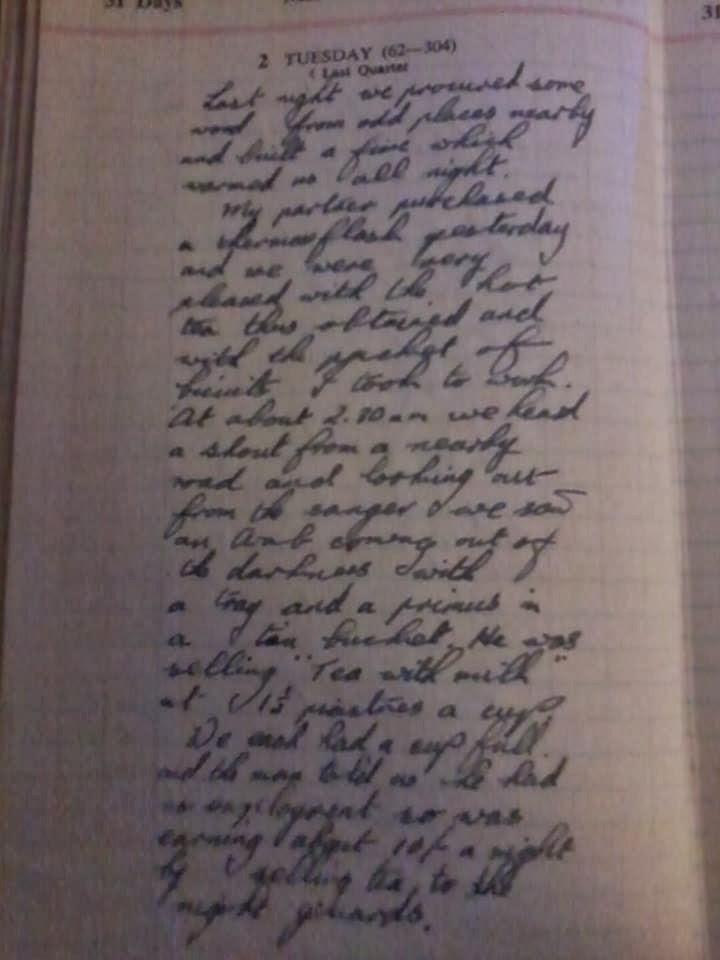 31 Days
31
2 TUESDAY (62—304)
☾ Last Quarter
Last night we procured some
wood from odd places nearby
and built a fire which
warmed us all night.
My partner purchased
a thermosflask yesterday
and we were very
pleased with the hot
tea thus obtained and
with the packet of
biscuits I took to work.
At about 2.30 am we heard
a shout from a nearby
road and looking out
from the sangar we saw
an Arab coming out of
the darkness with
a tray and a primus in
a tin bucket. He was
selling "Tea with milk"
at 1½ piastres a cup.
We each had a cup full
and the man told us he had
no employment so was
earning about 10/- a night
by selling tea to the
night guards.